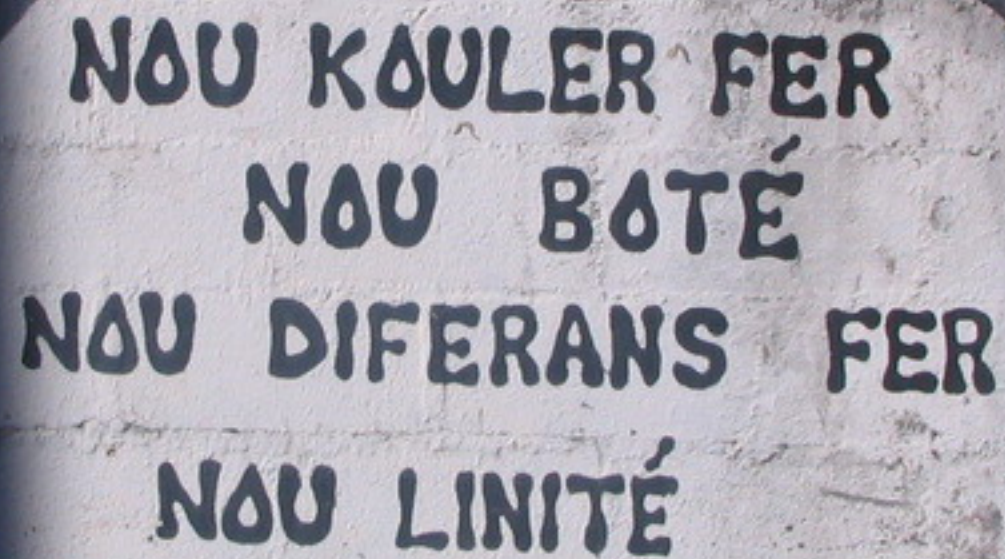 NOU KOULER FER
NOU BOTÉ
NOU DIFERANS FER
NOU LINITÉ